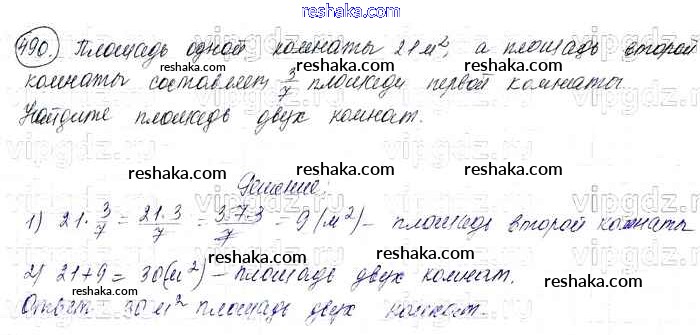 reshaka.com
490. Площадь одной комнаты 21 м², а площадь второй
комнаты составляет 3/7 площади первой комнаты.
Найдите площадь двух комнат.
reshaka.com reshaka.com reshaka.com
Решение:
reshaka.com reshaka.com reshaka.com
1) 21·3/7 = 21·3/7 = 3·7·3/7 = 9 (м²) – площадь второй комнаты
2) 21+9 = 30 (м²) – площадь двух комнат.
reshaka.com reshaka.com reshaka.com
Ответ 30 м² площадь двух комнат.
reshaka.com